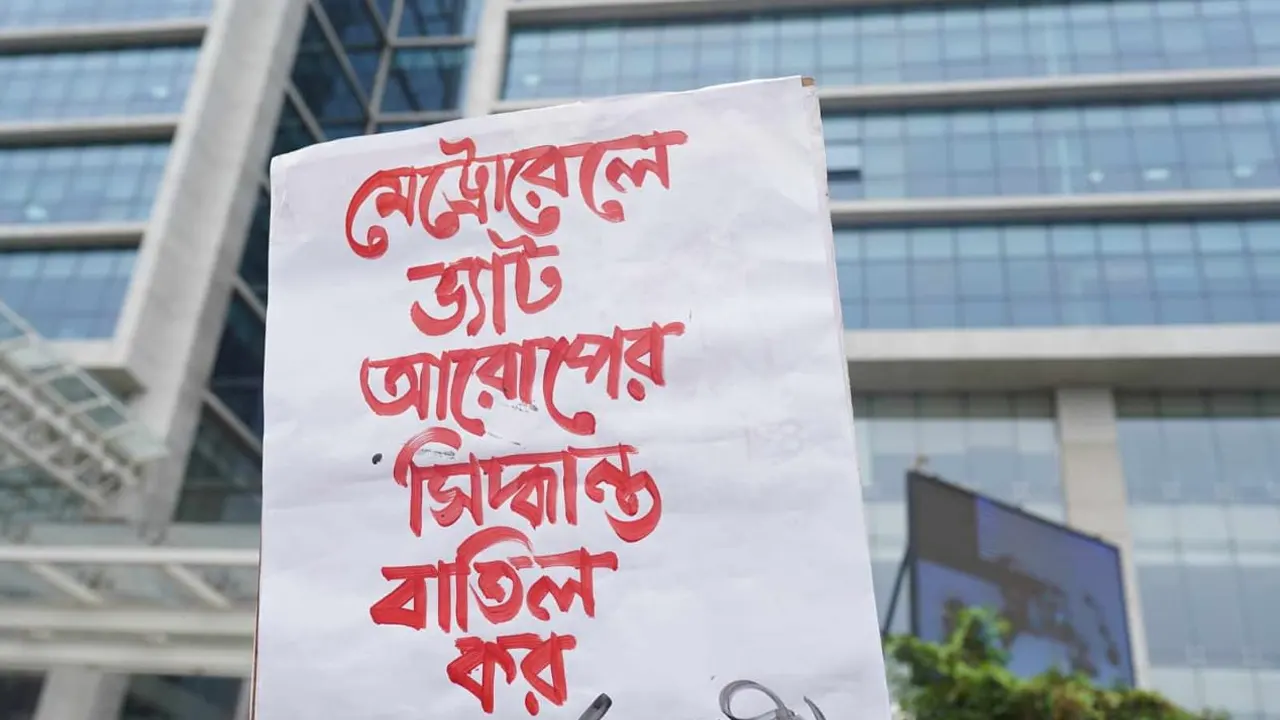 মেট্রোরেলে
ভ্যাট
আরোপের
সিদ্ধান্ত
বাতিল
কর